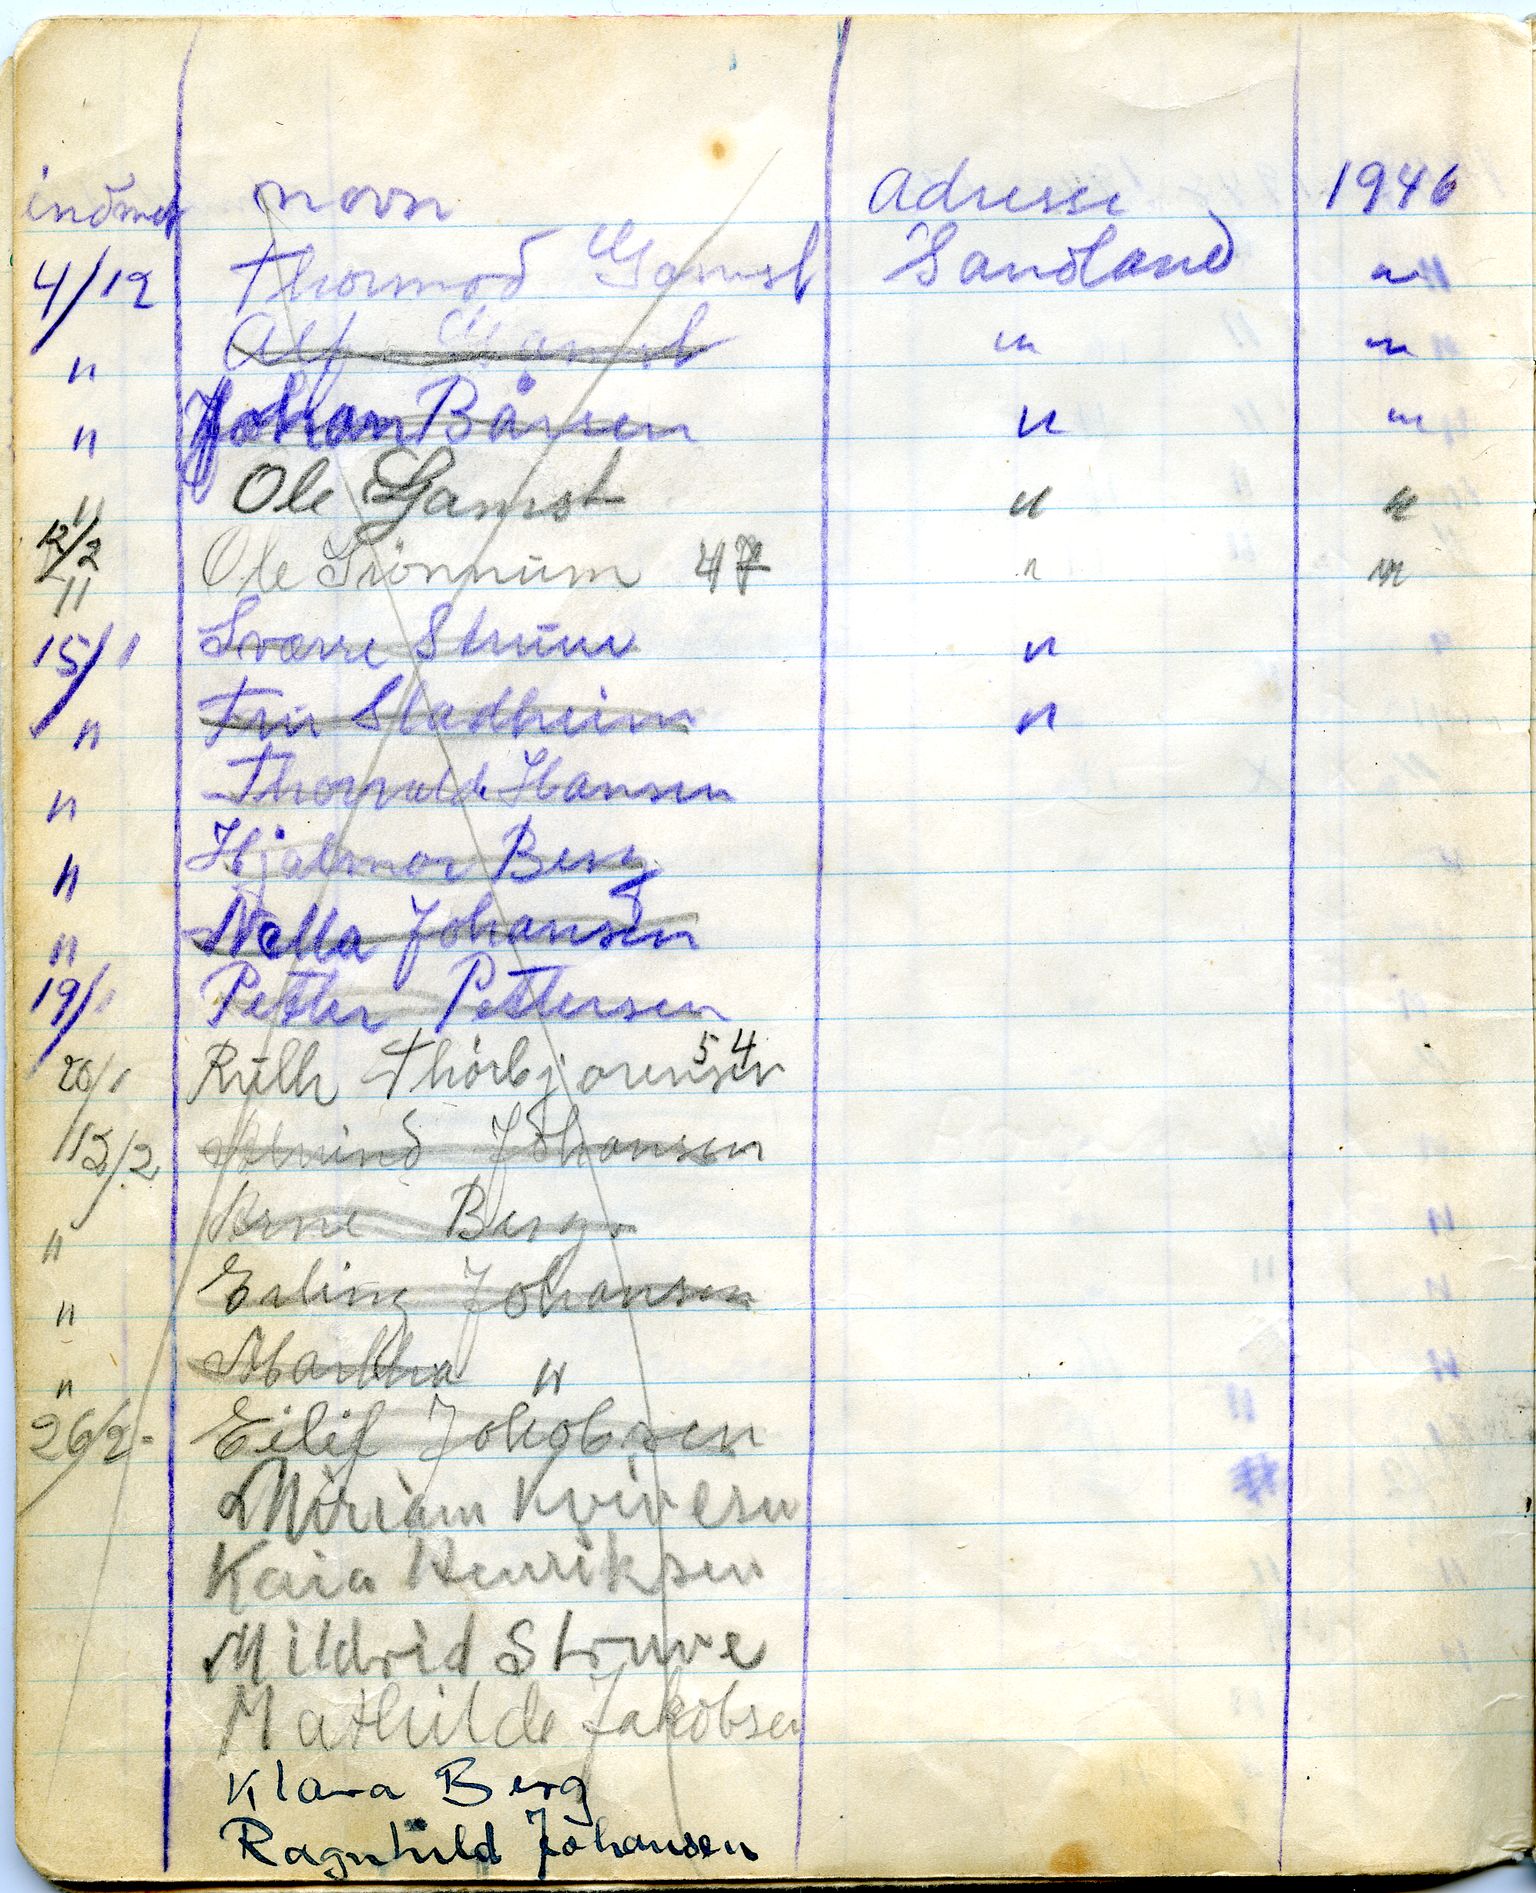 indmel navn adresse 1946
4/12 Thormod Gamst Sandland "
" Alf Gamst " "
" Johan Bårsen " "
" Ole Gamst " "
12/2 " Ole Grønnum 47 " "
15/1 Sværre Struve "
" Fru Stadheim "
" Thorvald Hansen
" Hjalmar Berg
" Nella Johansen
19/1 Petter Pettersen
20/1 Ruth Thorbjørensen 54
12/2 Johansen
" Arne Berg
" Erling Johansen
" Martha "
26/2- Eilif Jakobsen
Miriam
Kaia Henriksen
Mildrid Struve
Mathilde Jakobsen
Klara Berg
Ragnhild Johansen